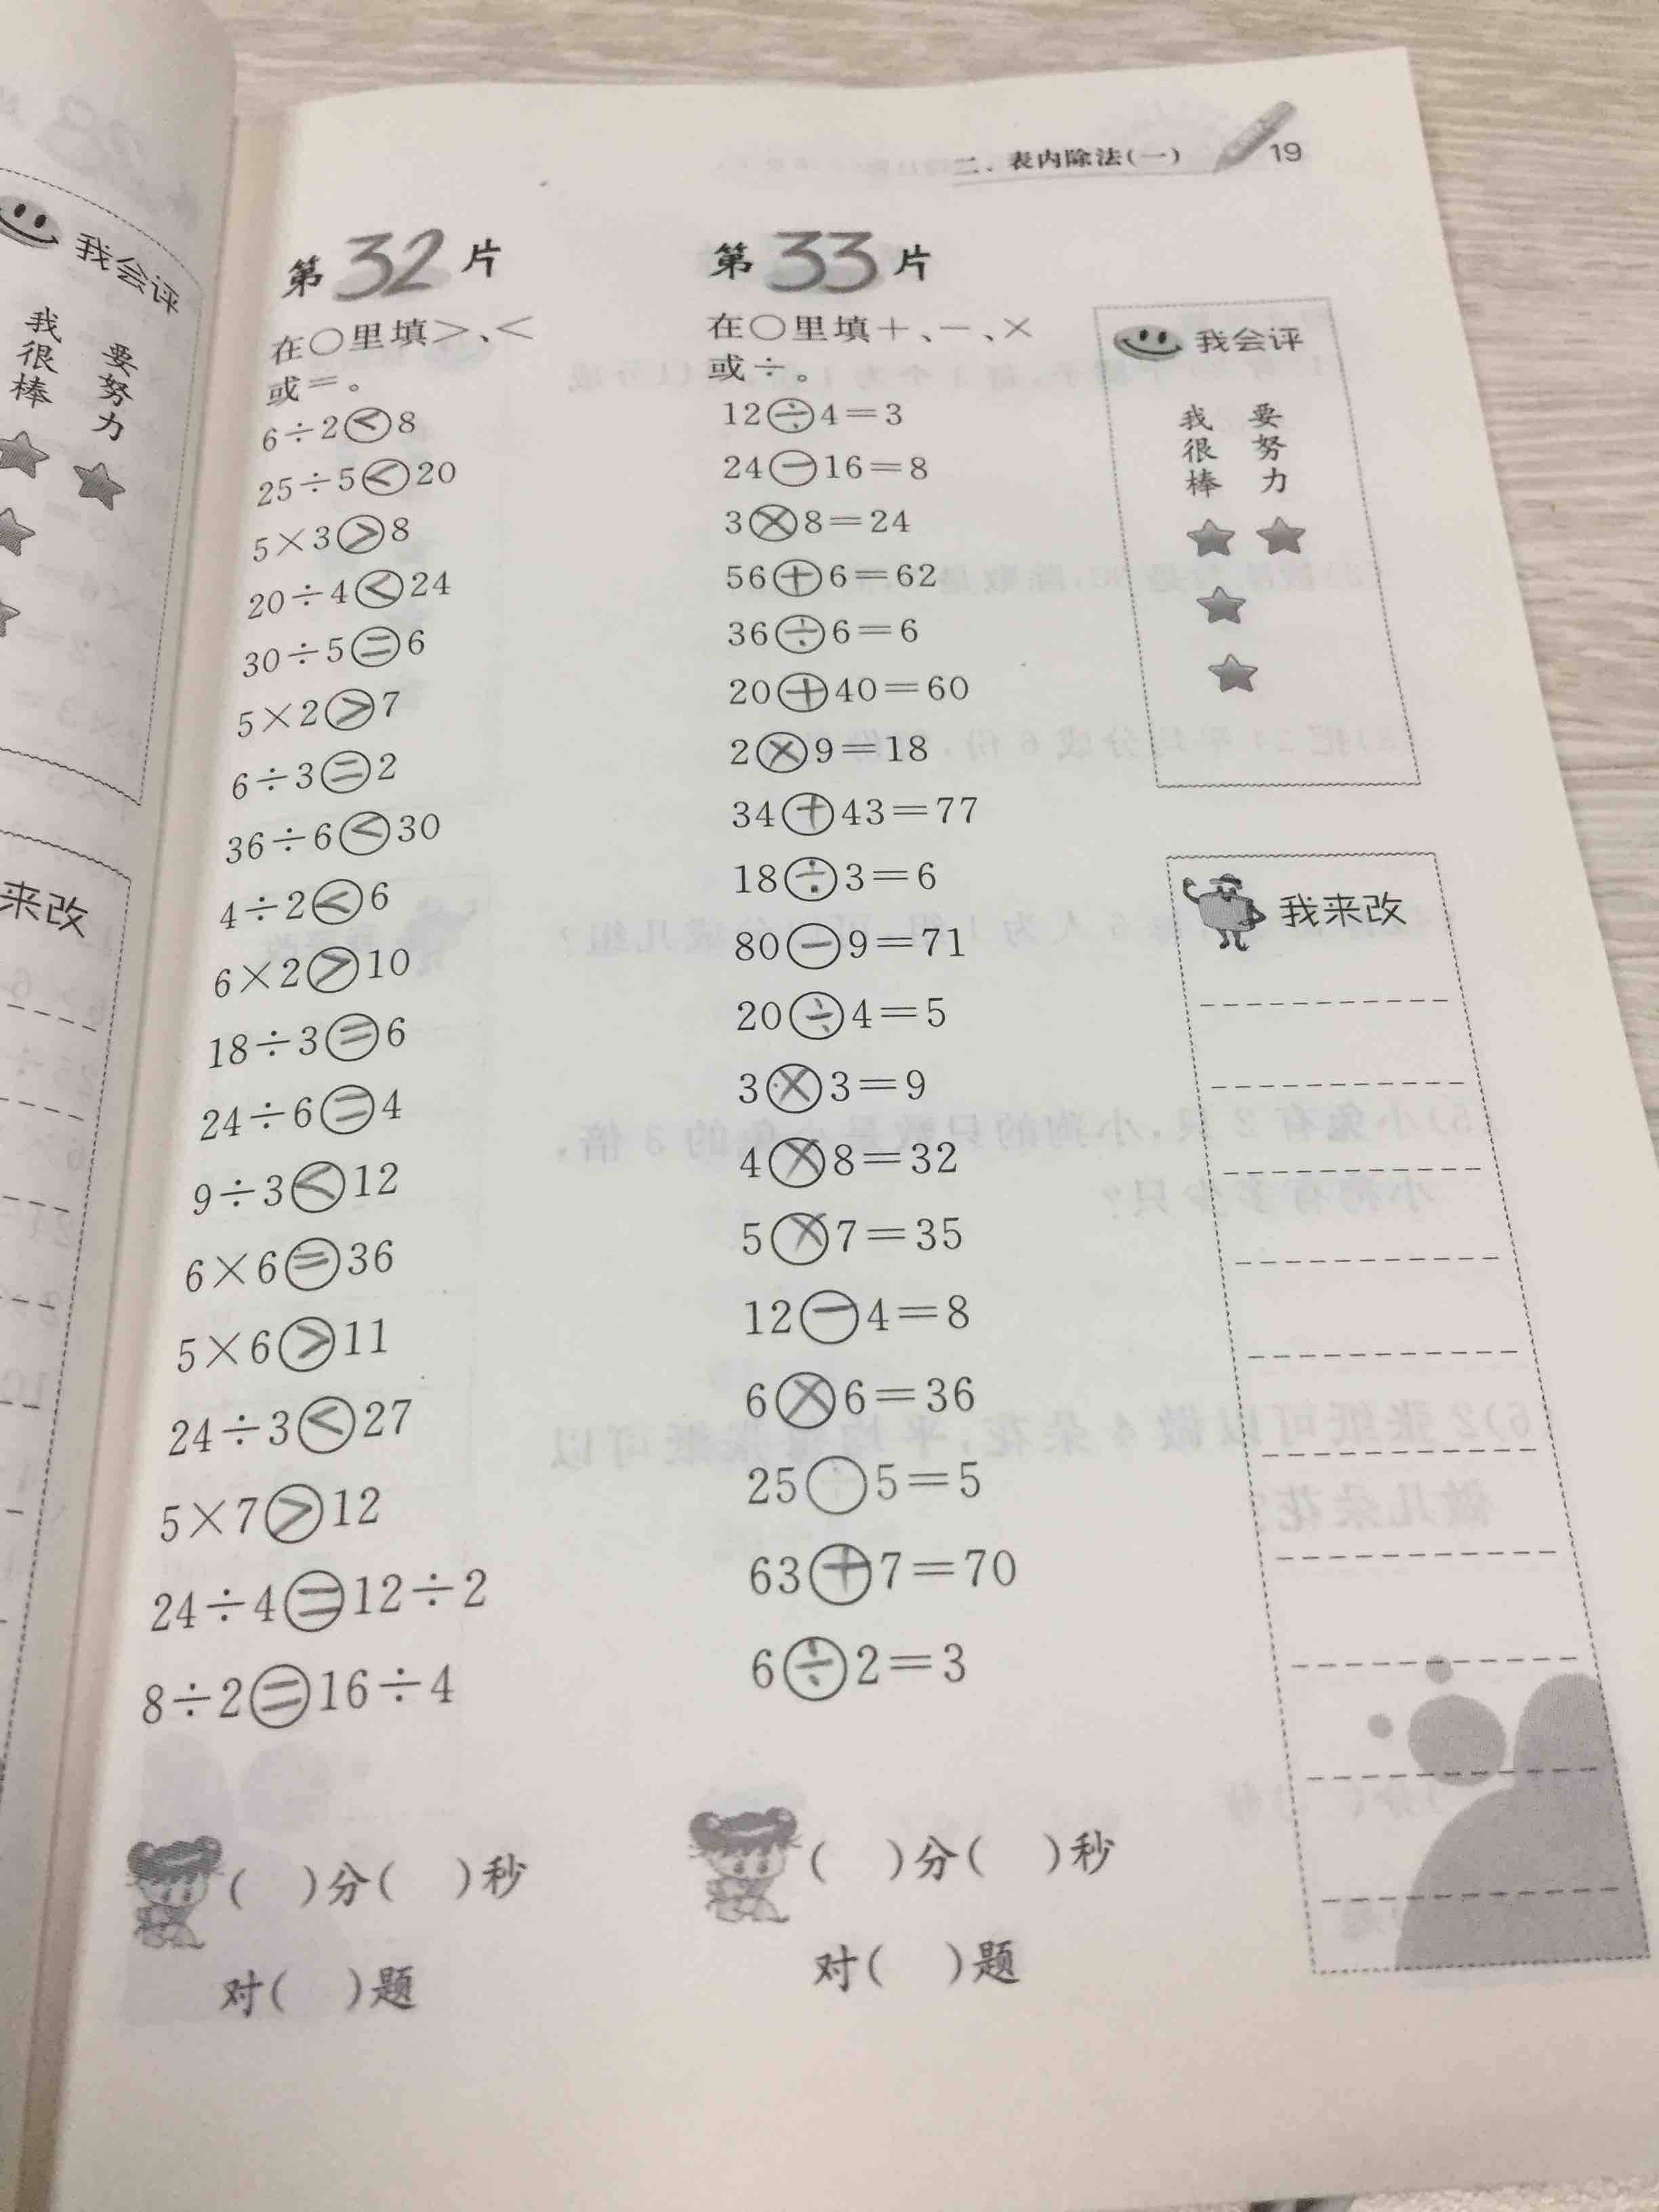 二、表内除法(一) 19
我会评
我很棒 要努力
来改
第32片
在○里填>、<
或=。
6÷2<8
25÷5<20
5×3>8
20÷4<24
30÷5=6
5×2>7
6÷3=2
36÷6<30
4÷2<6
6×2>10
18÷3=6
24÷6=4
9÷3<12
6×6=36
5×6>11
24÷3<27
5×7>12
24÷4=12÷2
8÷2=16÷4
( )分( )秒
对( )题
第33片
在○里填+、-、×
或÷。
12÷4=3
24-16=8
3×8=24
56+6=62
36÷6=6
20+40=60
2×9=18
34+43=77
18÷3=6
80-9=71
20÷4=5
3×3=9
4×8=32
5×7=35
12-4=8
6×6=36
25○5=5
63+7=70
6÷2=3
( )分( )秒
对( )题
我会评
我很棒 要努力
我来改